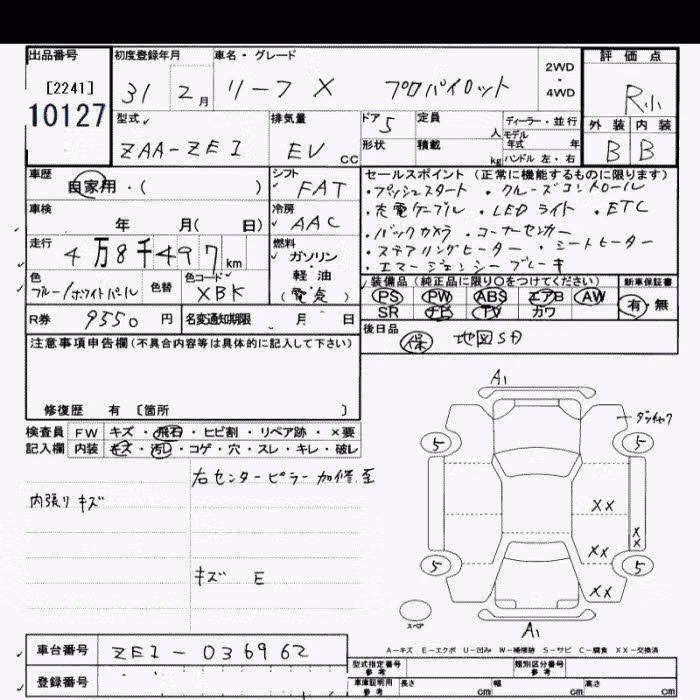 出品番号
[2241]
10127
初度登録年月
31 2月
車名・グレード
リーフ X プロパイロット
2WD
・
4WD
評価点
R小
外装 内装
B B
型式
ZAA-ZE1
排気量
EV CC
ドア 5
形状
定員 人
積載 kg
ディーラー・並行
モデル
年式 年
ハンドル 左・右
車歴
自家用・( )
シフト
FAT
車検
年 月( 日)
冷房
AAC
走行
4万8千497km
燃料
ガソリン
軽・油
(電気)
色
ブルー/ホワイトパール
色替
色コード
XBK
R券 9550円
名変通知期限 月 日
セールスポイント (正常に機能するものに限ります)
・プッシュスタート ・クルーズコントロール
・充電ケーブル ・LEDライト ・ETC
・バックカメラ ・コーナーセンサー
・ステアリングヒーター ・シートヒーター
・エマージェンシーブレーキ
装備品 (純正品に限り○をつけてください)
PS PW ABS エアB AW
SR ナビ TV カワ
新車保証書
有・無
後日品
保 地図SD
注意事項申告欄(不具合内容等は具体的に記入して下さい)
修復歴 有 〔箇所 〕
検査員 FW キズ・飛石・ヒビ割・リペア跡・×要
記入欄 内装 キズ・汚レ・コゲ・穴・スレ・キレ・破レ
右センターピラー加修歪
内張りキズ
キズ E
A1
5 5
XX
XX
XX
XX
5 5
スペア
A1
A-キズ E-エクボ U-凹み W-補修跡 S-サビ C-腐食 XX-交換済
車台番号 ZE1-036962
登録番号
型式指定番号
参考
類別区分番号
参考
車庫証明用
参考
長さ cm 幅 cm 高さ cm